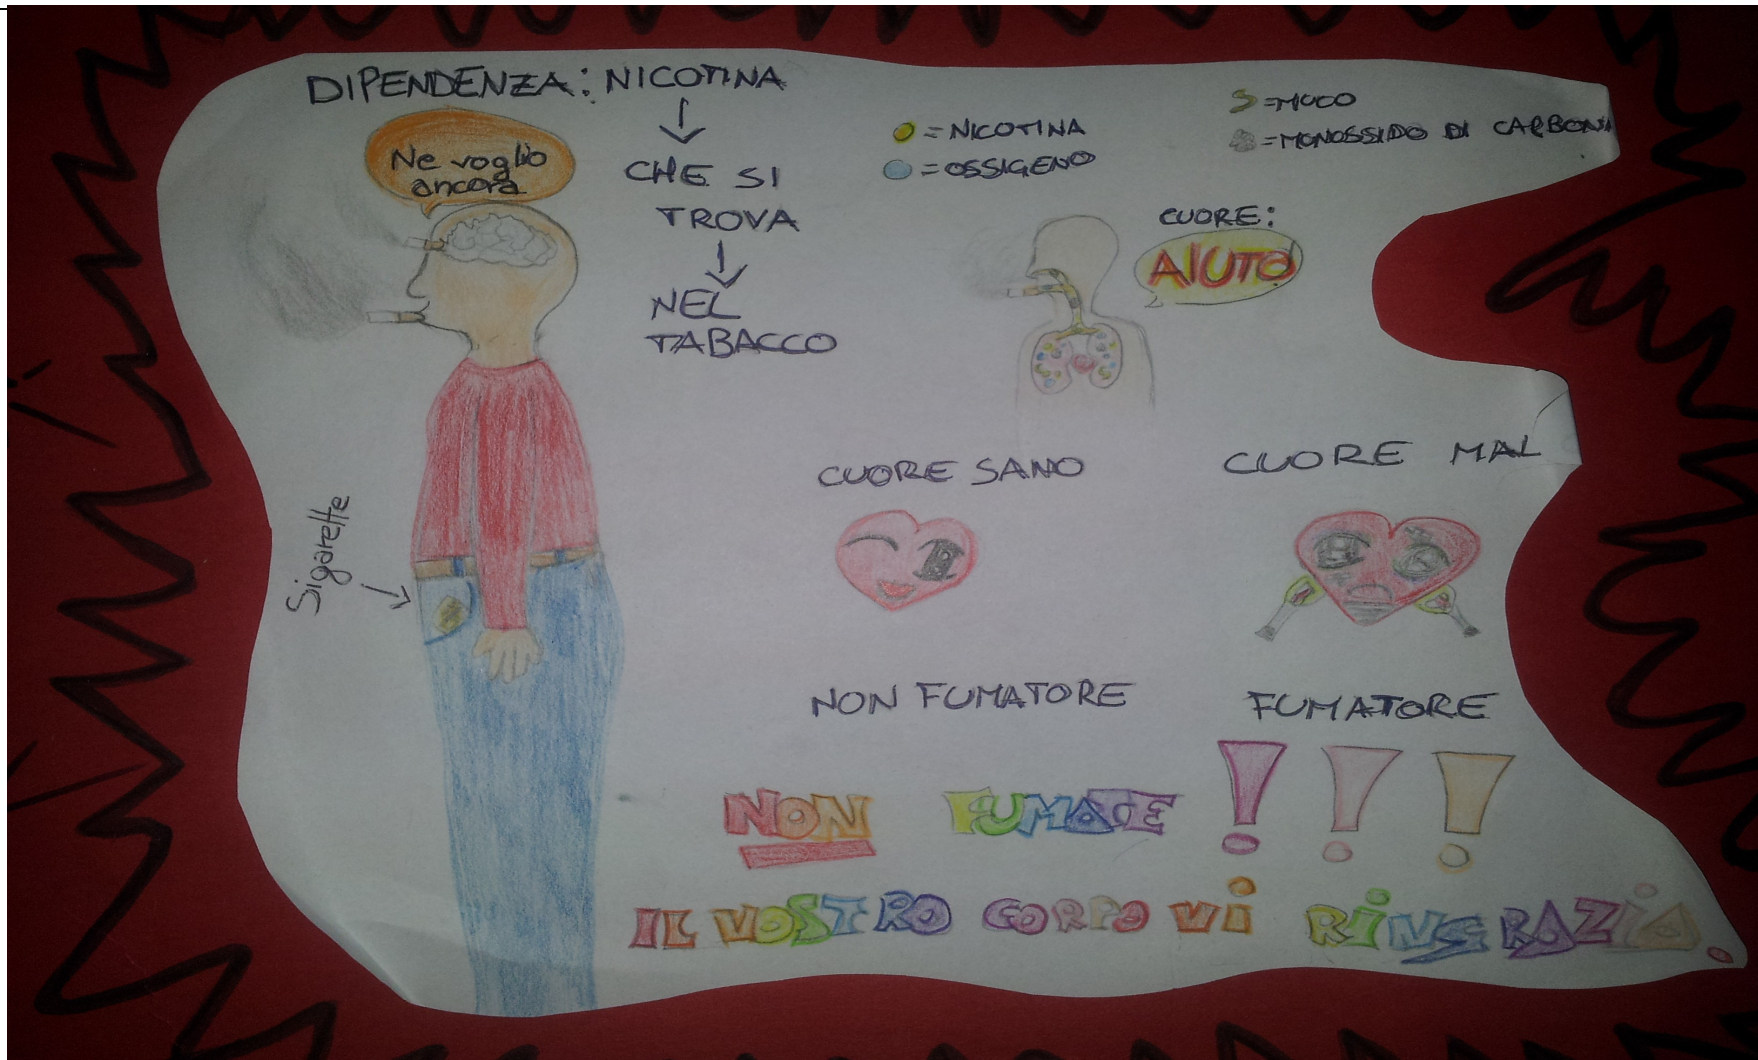 DIPENDENZA: NICOTINA
Ne voglio
ancora
CHE SI
TROVA
NEL
TABACCO
= NICOTINA
= OSSIGENO
= MUCO
= MONOSSIDO DI CARBONI
CUORE:
AIUTO
Sigarette
CUORE SANO
CUORE MAL
NON FUMATORE
FUMATORE
NON FUMATE !!!
IL VOSTRO CORPO VI RINGRAZIA.